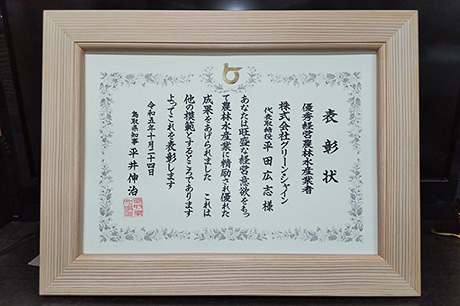 表彰状
優秀経営農林水産業者
株式会社グリーンシャイン
代表取締役 平田広志 様
あなたは旺盛な経営意欲をもっ
て農林水産業に精励され優れた
成果をあげられました これは
他の模範とするところであります
よってこれを表彰します
令和五年十月二十四日
鳥取県知事 平井伸治